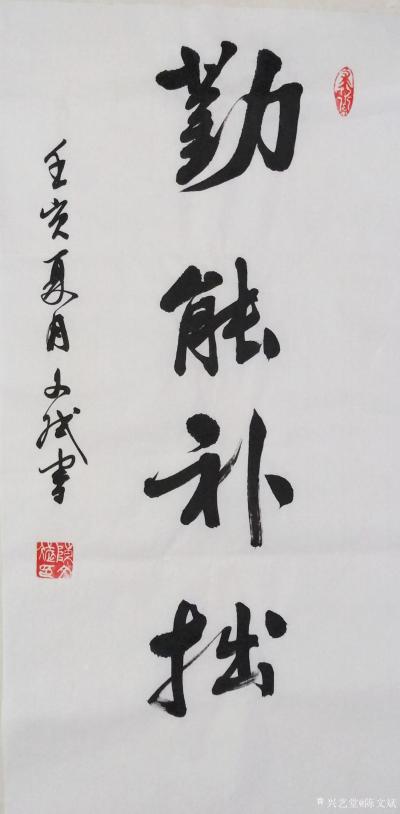 勤能补拙
壬寅夏月文斌书
兴艺堂@陈文斌